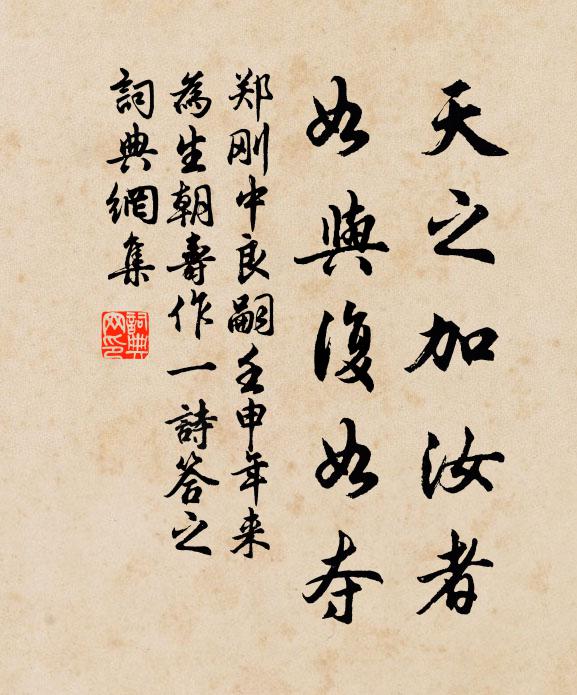 天之加汝者
如與復如夺
郑刚中良嗣壬申年来
為生朝壽作一詩答之
詞典網集
詞典网印